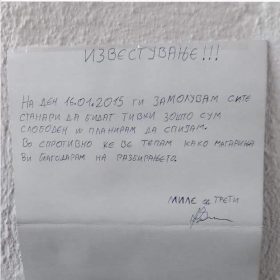 ИЗВЕСТУВАЊЕ!!!
НА ДЕН 16.01.2015 ГИ ЗАМОЛУВАМ СИТЕ
СТАНАРИ ДА БИДАТ ТИВКИ ЗОШТО СУМ
СЛОБОДЕН И ПЛАНИРАМ ДА СПИЈАМ.
ВО СПРОТИВНО ЌЕ ВЕ ТЕПАМ КАКО МАГАРИЊА
ВИ БЛАГОДАРАМ НА РАЗБИРАЊЕТО.
МИЛЕ ОД ТРЕТИ